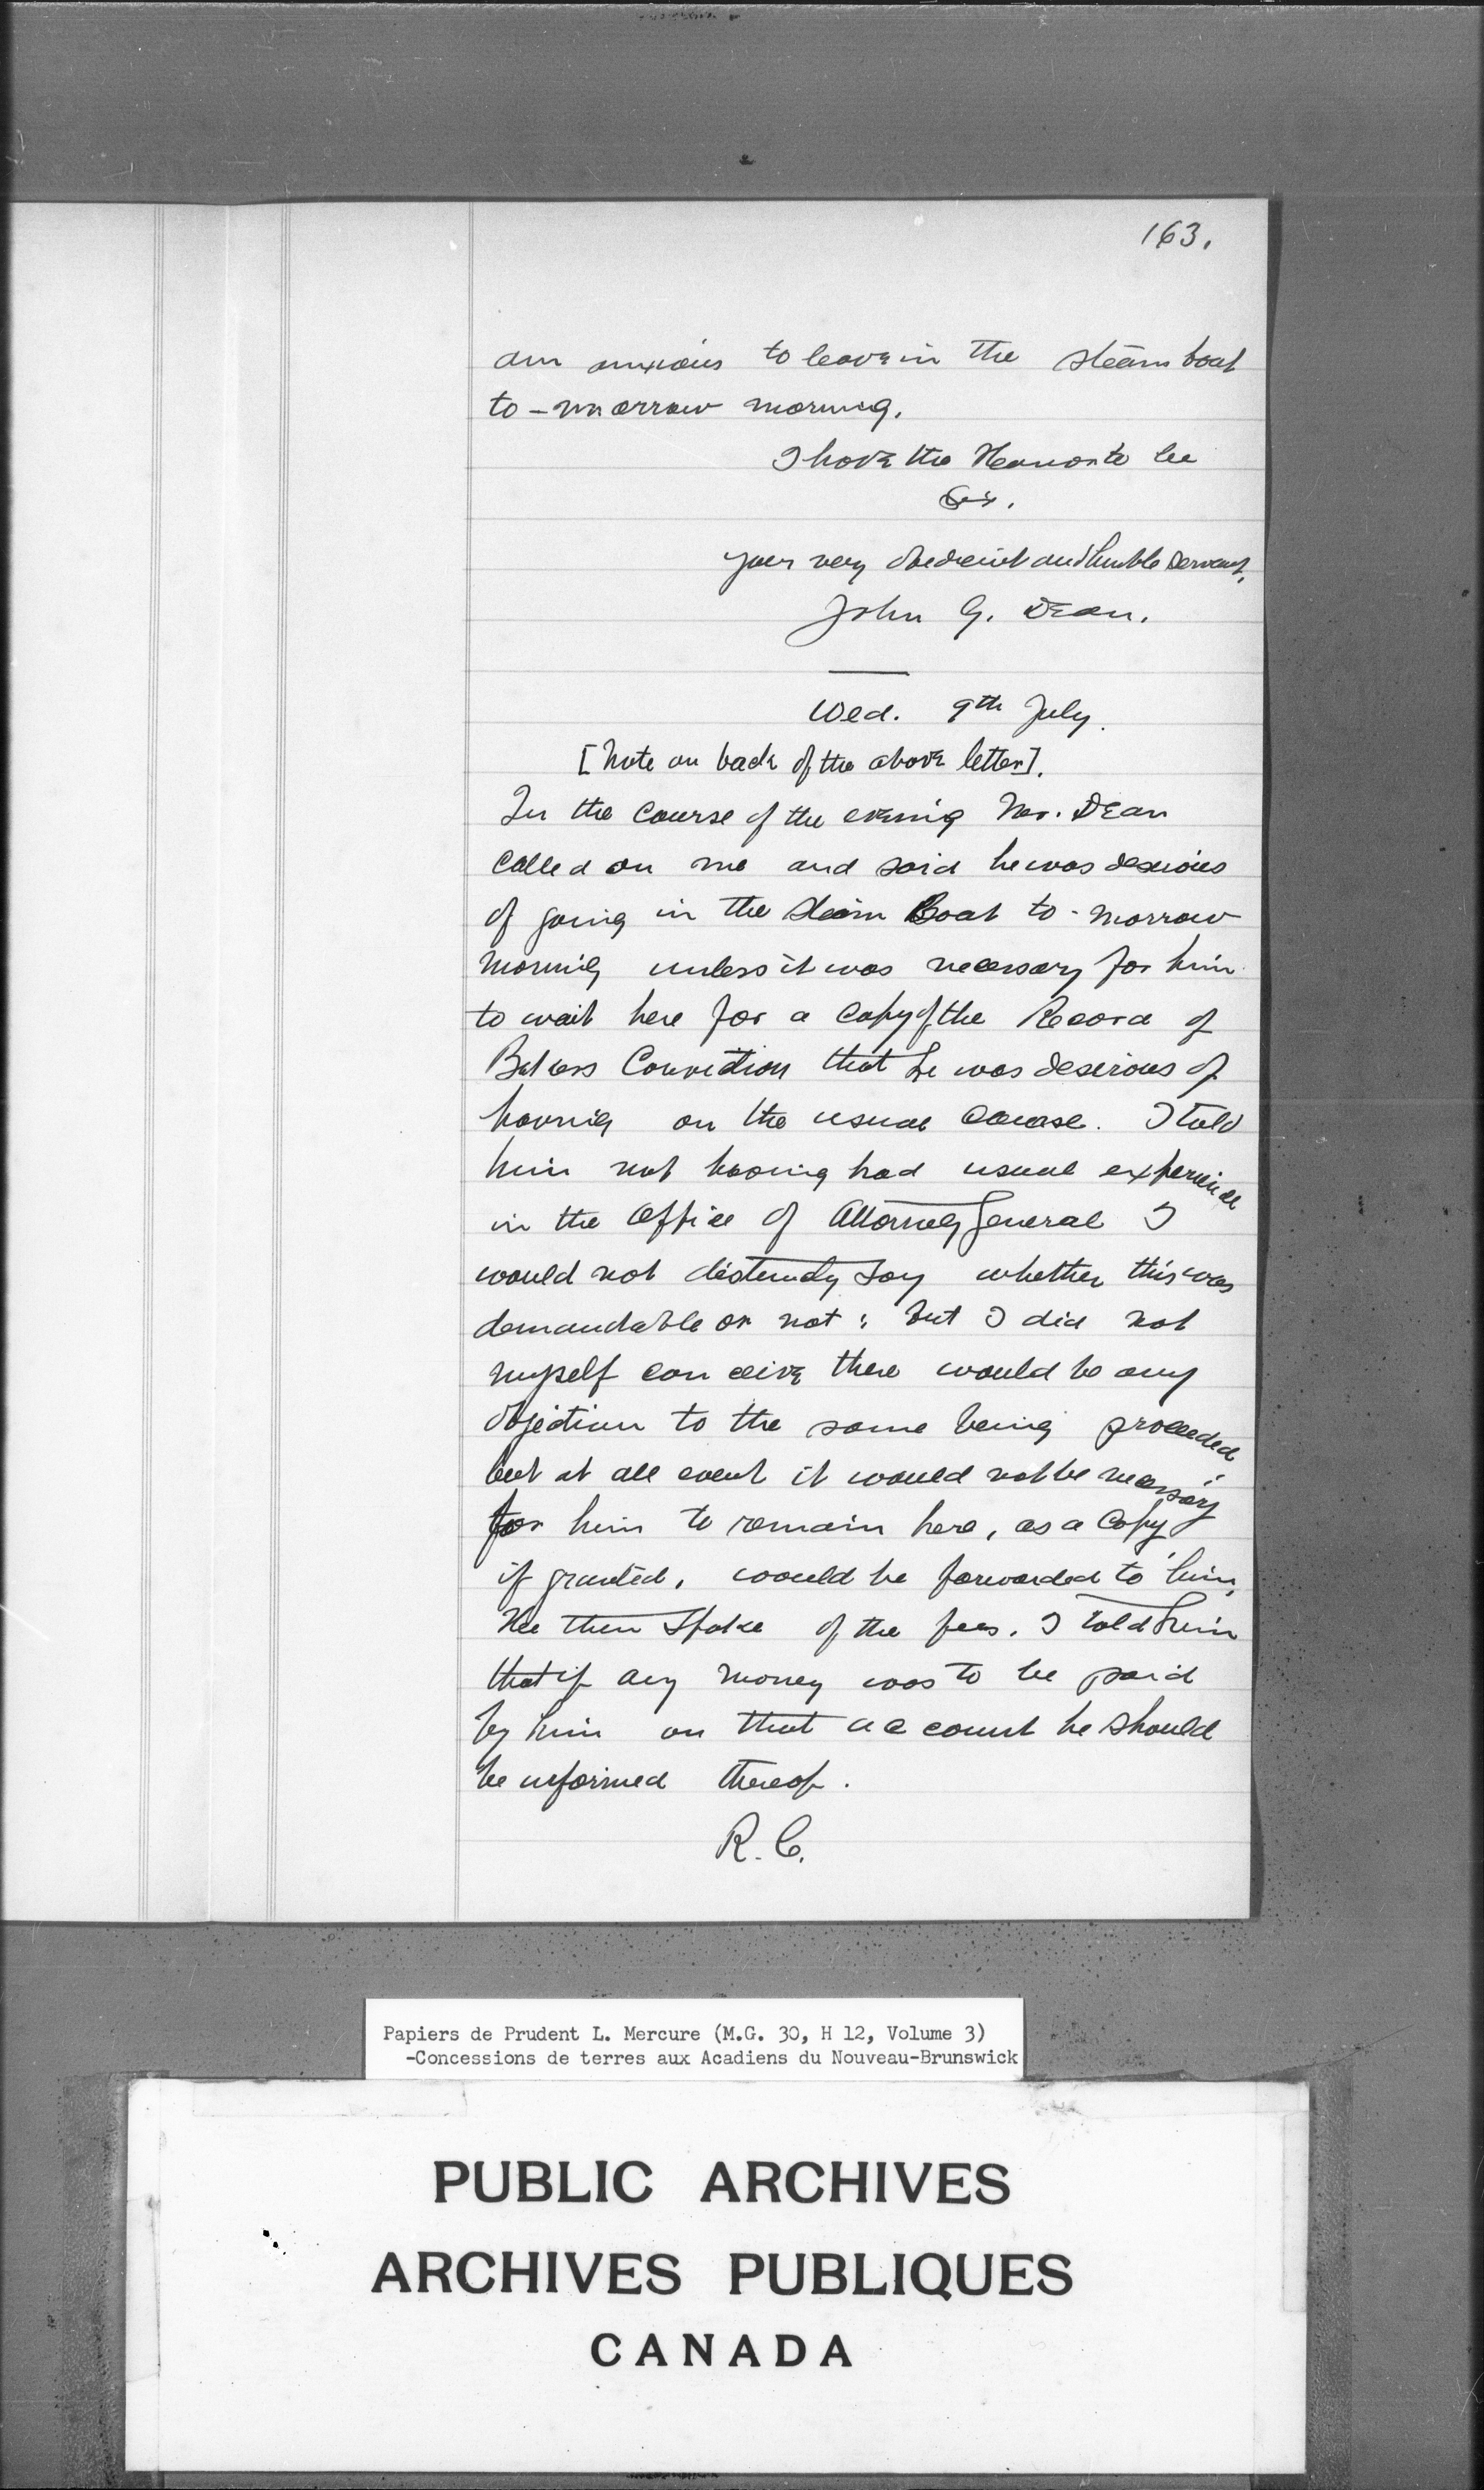 163.
am anxious to leave in the steam boat
to-morrow morning.
I have the Honor to be
Sir.
your very obedient and humble servant,
John G. Dean.
Wed. 9th July.
[Note on back of the above letter].
In the course of the evening Mr. Dean
called on me and said he was desirous
of going in the Steam Boat to-morrow
morning unless it was necessary for him
to wait here for a Copy of the Record of
Conviction that he was desirous of
having on the usual course. I told
him not having had usual experience
in the office of Attorney General I
would not distinctly say whether this was
demandable or not; but I did not
myself conceive there would be any
objection to the same being proceeded
but at all event it would not be necessary
for him to remain here, as a Copy
if granted, would be forwarded to him,
He then spoke of the fees. I told him
that if any money was to be paid
by him on that account he should
be informed thereof.
R. C.
Papiers de Prudent L. Mercure (M.G. 30, H 12, Volume 3)
-Concessions de terres aux Acadiens du Nouveau-Brunswick
PUBLIC ARCHIVES
ARCHIVES PUBLIQUES
CANADA